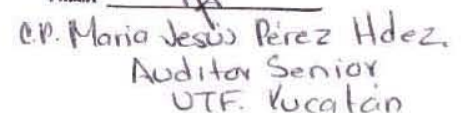 C.P. María Jesús Pérez Hdez.
Auditor Senior
UTF. Yucatán